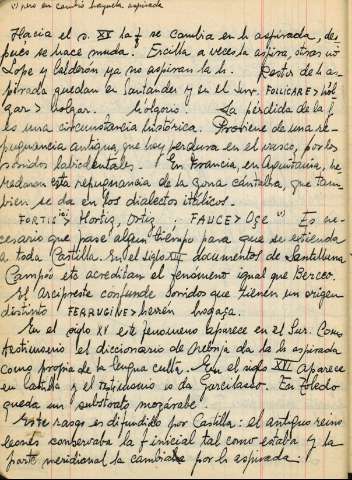 (1) pero en cambio baqueta aspirada
Hacia el s. XV la f se cambia en h aspirada, des
pués se hace muda. Ercilla a veces la aspira, otras no
Lope y Calderón ya no aspiran la h. Restos de h as-
pirada quedan en Santander y en el Sur. FOLLICARE > hol
gar > holgar. holgorio. La pérdida de la f
es una circunstancia histórica. Proviene de una re-
pugnancia antigua que hoy perdura en el vasco, por los
sonidos labiodentales. En Francia, en Aquitania, he-
redaron esta repugnancia de la zona cántabra, que tam-
bién se da en los dialectos itálicos.
FORTIS > Hortiz, Ortiz. FAUCE > Oçe (1) Es ne-
cesario que pase algún tiempo para que se extienda
a toda Castilla. En el siglo XIII documentos de Santillana
Campóo etc acreditan el fenómeno igual que Berceo.
El Arcipreste confunde sonidos que tienen un origen
distinto FERRUGINE > herén hogaça.
En el siglo XV este fenómeno aparece en el Sur. Como
testimonio el diccionario de da la h aspirada
como propia de la lengua culta. En el siglo XVI aparece
en Castilla y el testimonio lo da Garcilaso. En Toledo
queda un substrato mozárabe.
Este rasgo es difundido por Castilla: el antiguo reino
leonés conservaba la f inicial tal como estaba y la
parte meridional la cambiaba por h aspirada: